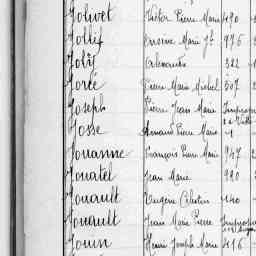 Jolivet Victor Pierre Marie 490
Jollif Yves Marie Jh 975
Joly Alexandre 322
Jorée Pierre Marie Michel 507
Joseph Pierre Jean Marie
Josse Armand Pierre Marie
Jouanne François Pierre Marie 947
Jouatel Jean Marie 990
Jouault Eugène Célestin 140
Jouault Jean Marie Pierre
Jouin Henri Joseph Marie 416